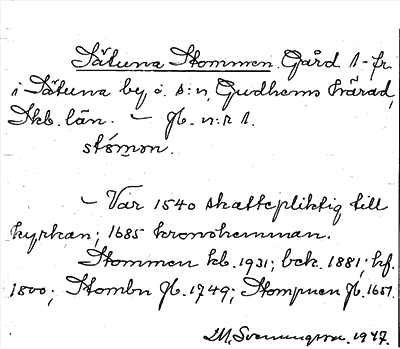 Sätuna Stommen. Gård 1-fr.
i Sätuna by o. s:n, Gudhems härad,
Skb. län. – Jb. n:r 1.
stómon.
– Var 1540 skattepliktig till
kyrkan; 1685 kronohemman.
Stommen kb. 1931; bek. 1881; kf.
1800; Stombn Jb. 1749; Stompnen Jb. 1651.
M. Svenungsson. 1947.